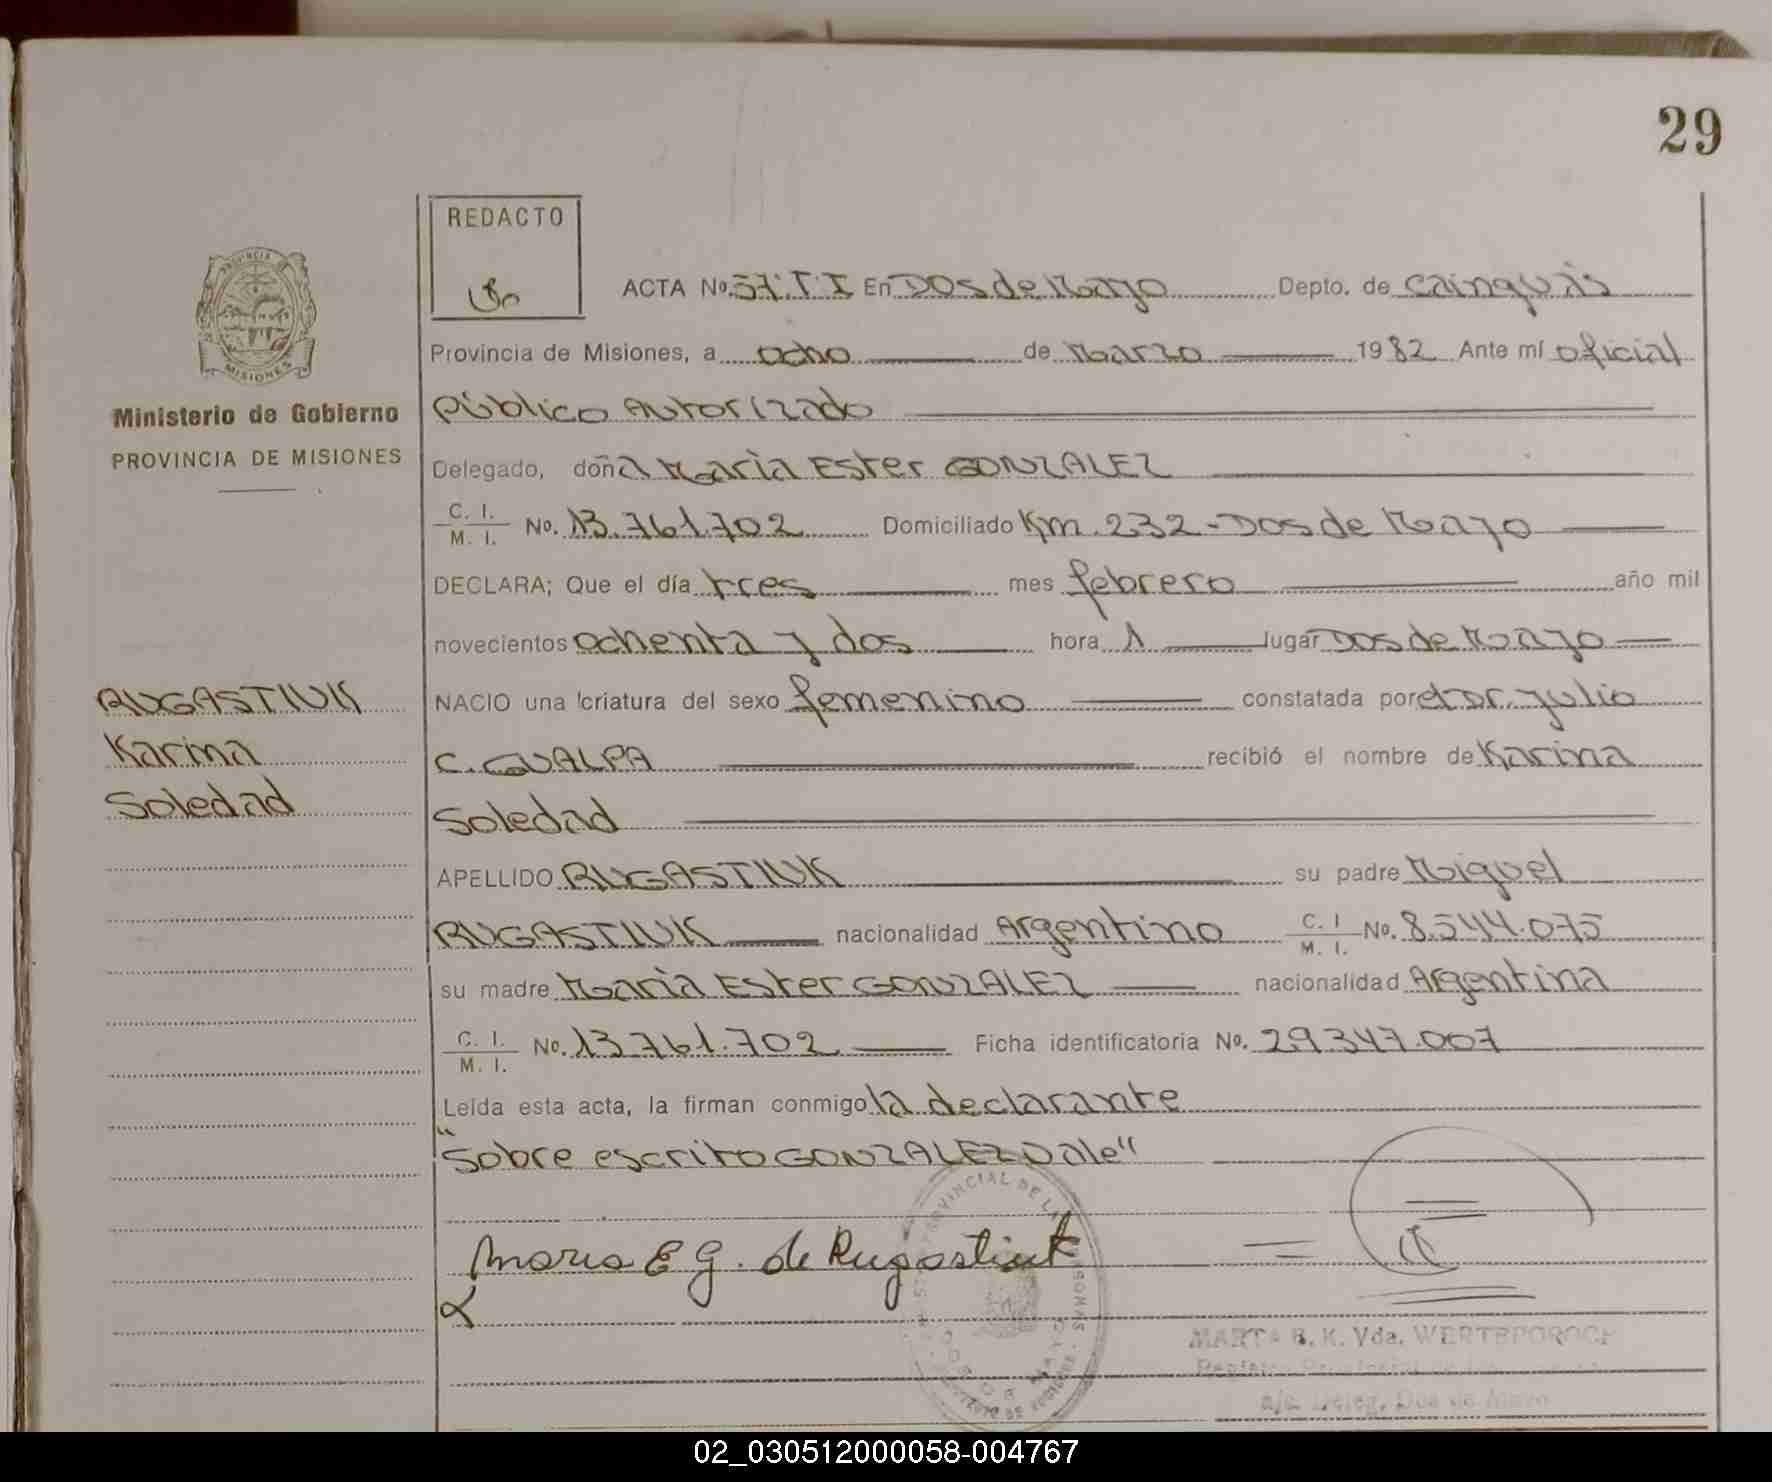 29
REDACTO
ACTA No. 57.T I En Dos de Mayo Depto. de Cainguás
Provincia de Misiones, a ocho de Marzo 1982 Ante mí oficial
Ministerio de Gobierno
público Autorizado
PROVINCIA DE MISIONES
Delegado, doña Maria Ester GONZALEZ
C. I.
M. I. No. 13.761.702 Domiciliado Km. 232-Dos de Mayo
DECLARA; Que el día tres mes febrero año mil
novecientos ochenta y dos hora 1 lugar Dos de Mayo
RUGASTIUK
Karina
Soledad
NACIO una criatura del sexo femenino constatada por el Dr. Julio
C. GUALPA recibió el nombre de Karina
Soledad
APELLIDO RUGASTIUK su padre Miguel
RUGASTIUK nacionalidad Argentino C. I M. I. No. 8.544.075
su madre Maria Ester GONZALEZ nacionalidad Argentina
C. I.
M. I. No. 13.761.702 Ficha identificatoria No. 29.347.007
Leída esta acta, la firman conmigo la declarante
"Sobre escrito GONZALEZ Vale"
Maria E G. de Rugastiuk
MARTA B. K. Vda. WERTEPOROCH
a/c. Deleg. Dos de Mayo
PROVINCIA DE
MISIONES
02_030512000058-004767